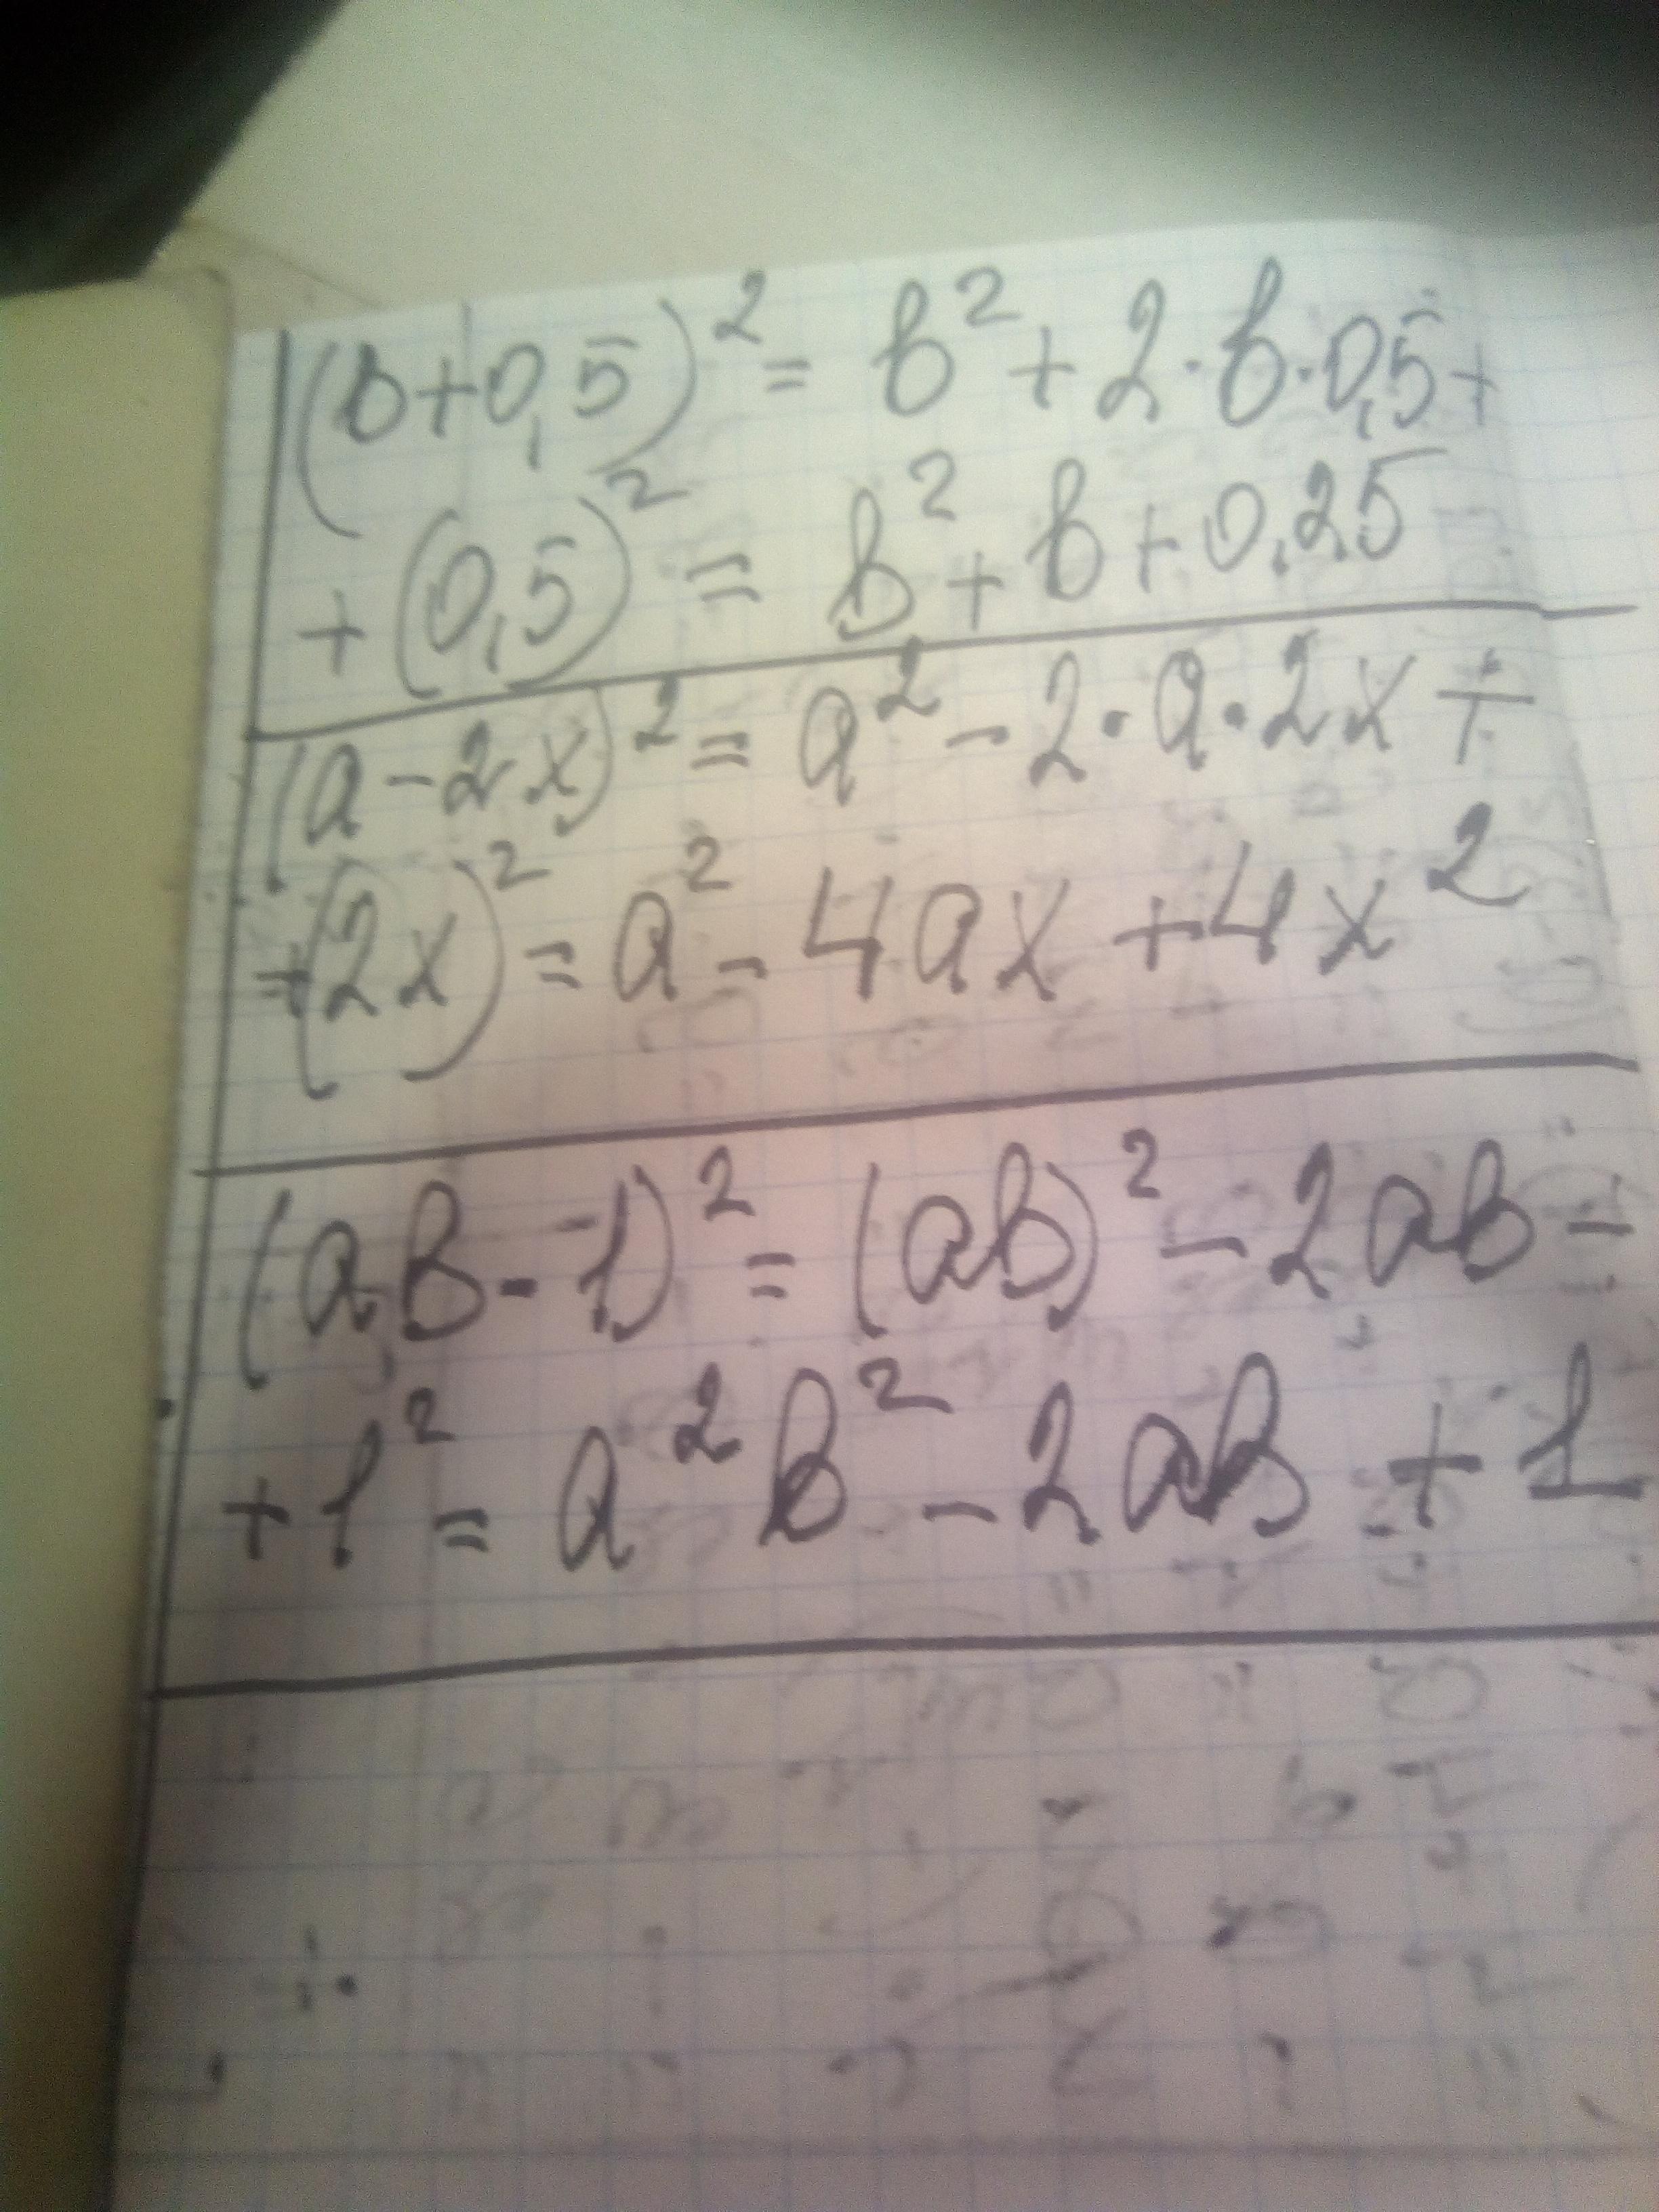 (b+0,5)² = b² + 2·b·0,5+
+(0,5)² = b² + b + 0,25
(a-2x)² = a² - 2·a·2x +
+(2x)² = a² - 4ax + 4x²
(ab-1)² = (ab)² - 2ab -
+1² = a²b² - 2ab + 1